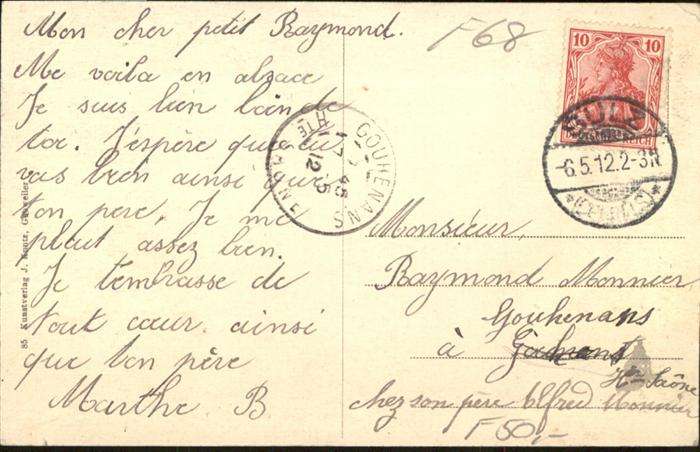 Mon cher petit Raymond.
Me voila en alsace
Je suis bien loin de
toi. J'éspère que tu
vas bien ainsi que
ton père. Je me
plait assez bien.
Je t'embrasse de
tout cœur ainsi
que ton père
Marthe B
F68
10 10
REICH
SULZ
-6.5.12.2-3N
GOUHENANS
HTE
7-5
12
Monsieur,
Raymond Monnier
Gouhenans
à
Hte Saône
chez son père Alfred Monnier
F50,-
85 Kunstverlag J.